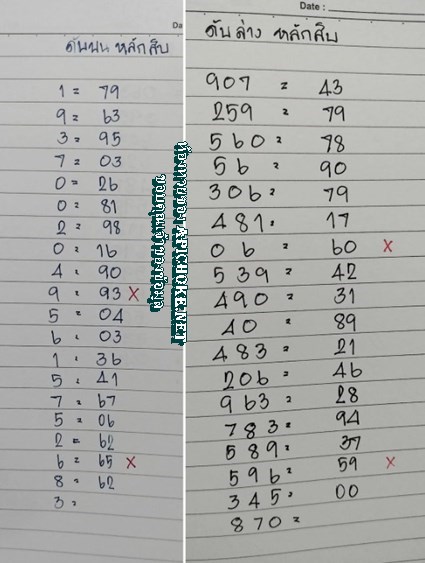 Da
ดับบน หลักสิบ
1 = 79
9 = 63
3 = 95
7 = 03
0 = 26
0 = 81
2 = 98
0 = 16
4 = 90
9 93 X
5 = 04
6 = 03
1 = 36
5 = 41
7 = 67
5 = 06
2 = 62
6 = 65 X
8 = 62
3 =
Date :
ดับล่าง หลักสิบ
907 = 43
259 = 79
560 = 78
56 = 90
306 = 79
481 = 17
06 = 60 X
539 = 42
490 = 31
40 = 89
483 = 21
206 = 46
963 = 28
783 = 94
589 = 37
596 = 59 X
345 = 00
870 =